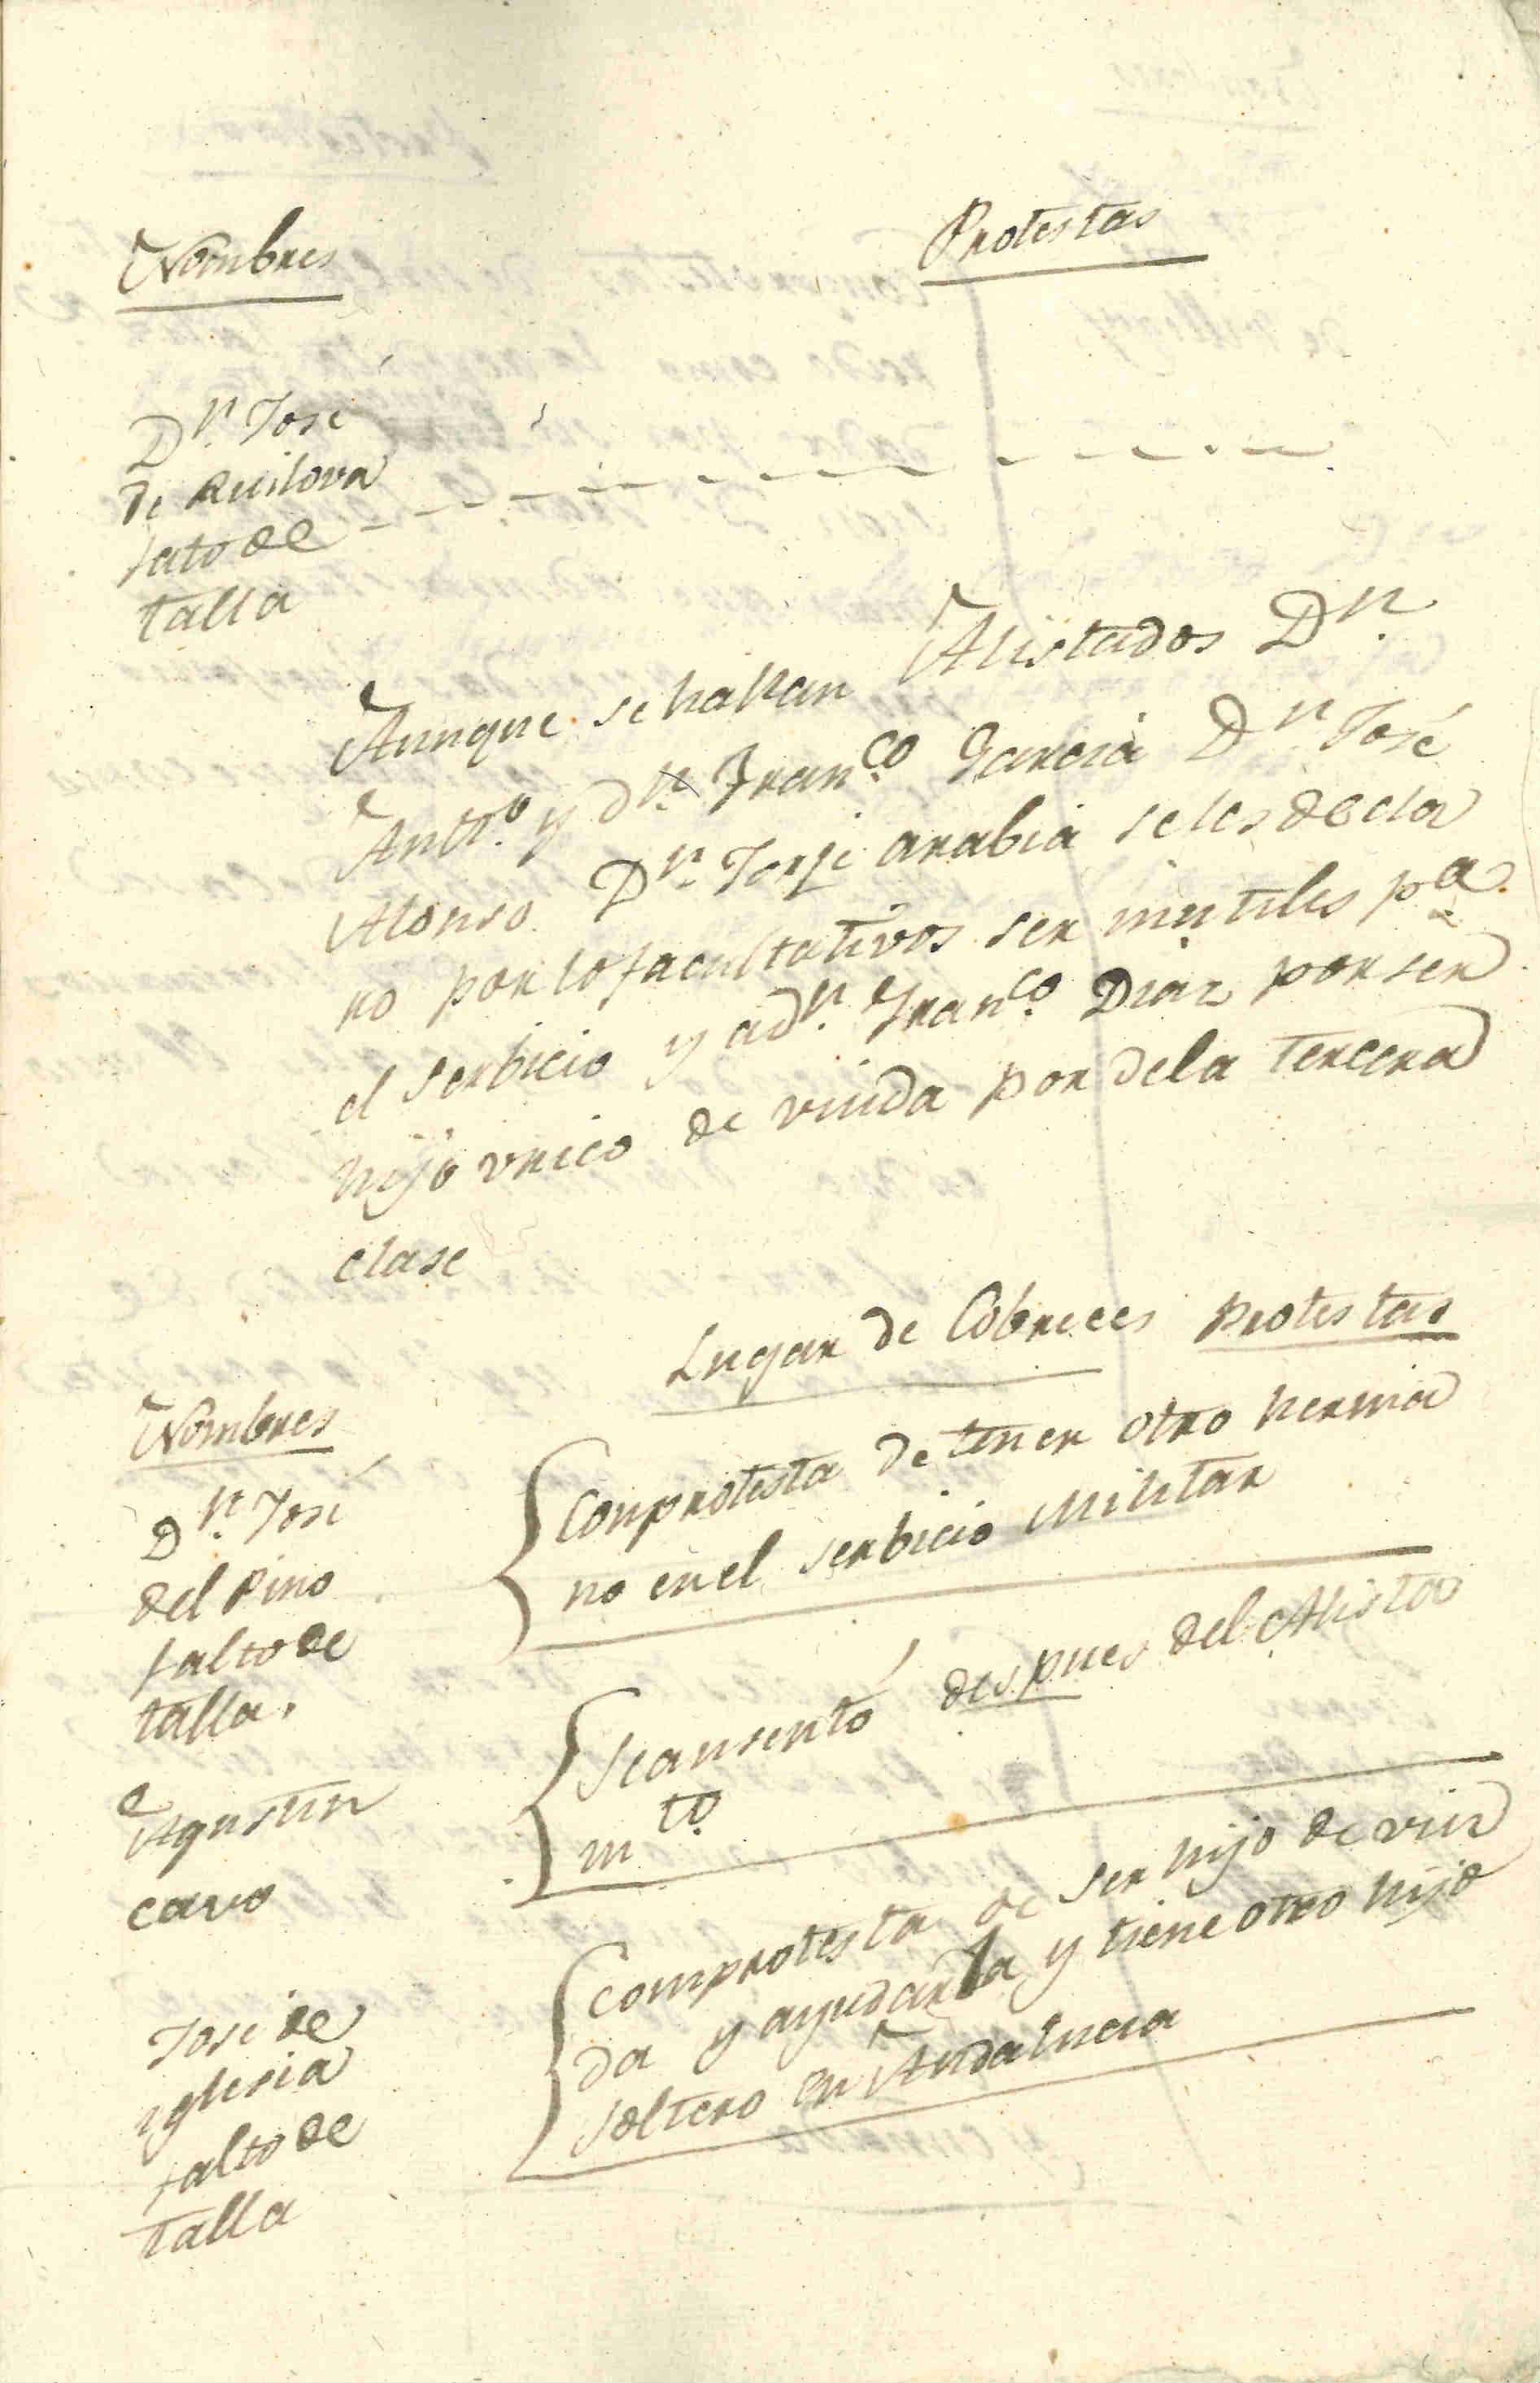 Nombres
Protestas
Dn. José
de Ruilova
fato de
talla
Aunque se hallan Alistados Dn.
Antto. y dn. Franco. Garcia Dn. José
Alonso. Dn. Jorje arabia se les decla
ro por lo facultativos ser inutiles pa.
el serbicio y a dn. Franco. Diaz por ser
hijo vnico de viuda por de la tercera
clase
Lugar de Cobreces protestas
Nombres
Dn. José
del Pino
falto de
talla.
Con protesta de tener otro herma
no en el serbicio Militar
Agustin
cavo
Se ausentó despues del Alista
mto.
José de
yglesia
falto de
talla
Com protesta de ser hijo de viu
da y ayudarla y tiene otro hijo
soltero en Andalucia